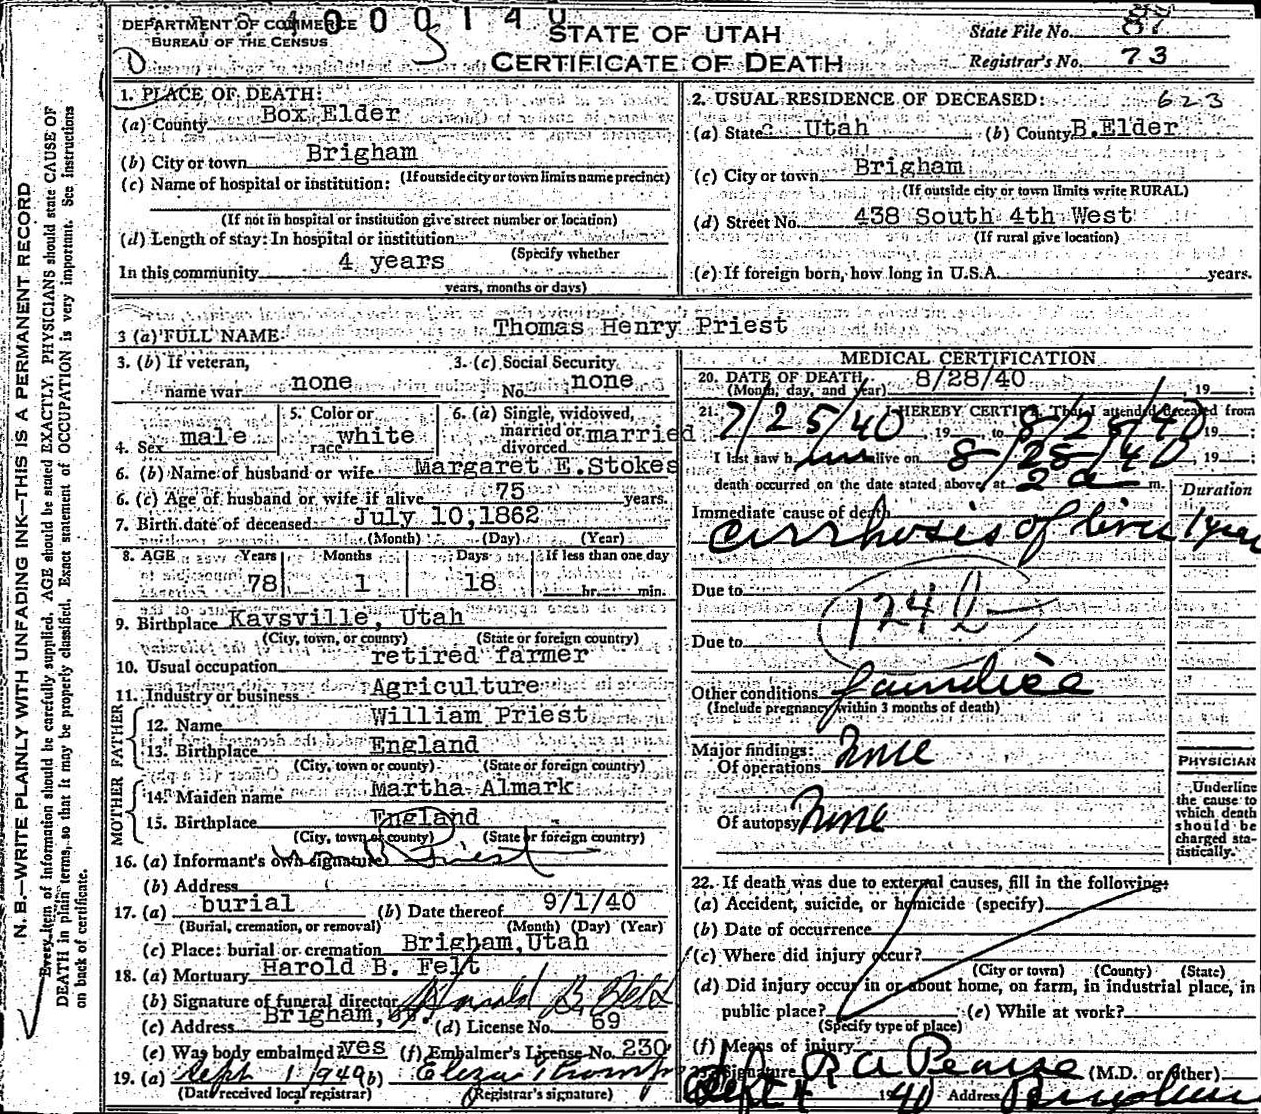 DEPARTMENT OF COMMERCE
BUREAU OF THE CENSUS
4000140
STATE OF UTAH
CERTIFICATE OF DEATH
State File No. 87
Registrar's No. 73
1. PLACE OF DEATH:
(a) County Box Elder
(b) City or town Brigham
(If outside city or town limits name precinct)
(c) Name of hospital or institution:
(If not in hospital or institution give street number or location)
(d) Length of stay: In hospital or institution
(Specify whether
In this community 4 years
years, months or days)
2. USUAL RESIDENCE OF DECEASED: 623
(a) State Utah (b) County B.Elder
(c) City or town Brigham
(If outside city or town limits write RURAL)
(d) Street No. 438 South 4th West
(If rural give location)
(e) If foreign born, how long in U.S.A. years.
3 (a) FULL NAME Thomas Henry Priest
3. (b) If veteran, name war none
3. (c) Social Security No. none
4. Sex male
5. Color or race white
6. (a) Single, widowed, married or divorced married
6. (b) Name of husband or wife Margaret E.Stokes
6. (c) Age of husband or wife if alive 75 years.
7. Birth date of deceased July 10,1862
(Month) (Day) (Year)
8. AGE Years Months Days If less than one day
78 1 18 hr. min.
9. Birthplace Kaysville, Utah
(City, town, or county) (State or foreign country)
10. Usual occupation retired farmer
11. Industry or business Agriculture
FATHER
12. Name William Priest
13. Birthplace England
(City, town or county) (State or foreign country)
MOTHER
14. Maiden name Martha Almark
15. Birthplace England
(City, town or county) (State or foreign country)
16. (a) Informant's own signature Priest
(b) Address
17. (a) burial (b) Date thereof 9/1/40
(Burial, cremation, or removal) (Month) (Day) (Year)
(c) Place: burial or cremation Brigham,Utah
18. (a) Mortuary Harold B. Felt
(b) Signature of funeral director Harold B Felt
(c) Address Brigham, (d) License No. 69
(e) Was body embalmed yes (f) Embalmer's License No. 230
19. (a) Sept 1 1940 (b) Eliza
(Date received local registrar) (Registrar's signature)
MEDICAL CERTIFICATION
20. DATE OF DEATH 8/28/40
(Month, day, and year) 19 ;
21. I HEREBY CERTIFY, That I attended deceased from
7/25/40, 19 , to 8/28/40 19 ;
I last saw h im alive on 8/28/40, 19 ;
death occurred on the date stated above, at 2 a m.
Duration
Immediate cause of death
cirrhosis of liver 1 year
Due to
124 b
Due to
Other conditions Jaundice
(Include pregnancy within 3 months of death)
Major findings:
Of operations None
Of autopsy None
PHYSICIAN
Underline the cause to which death should be charged statistically.
22. If death was due to external causes, fill in the following:
(a) Accident, suicide, or homicide (specify)
(b) Date of occurrence
(c) Where did injury occur?
(City or town) (County) (State)
(d) Did injury occur in or about home, on farm, in industrial place, in
public place? (e) While at work?
(Specify type of place)
(f) Means of injury
23. Signature R A Pearse (M.D. or other)
Sept 4 1940 Address Brigham
N. B.—WRITE PLAINLY WITH UNFADING INK—THIS IS A PERMANENT RECORD
Every item of information should be carefully supplied. AGE should be stated EXACTLY. PHYSICIANS should state CAUSE OF
DEATH in plain terms, so that it may be properly classified. Exact statement of OCCUPATION is very important. See instructions
on back of certificate.